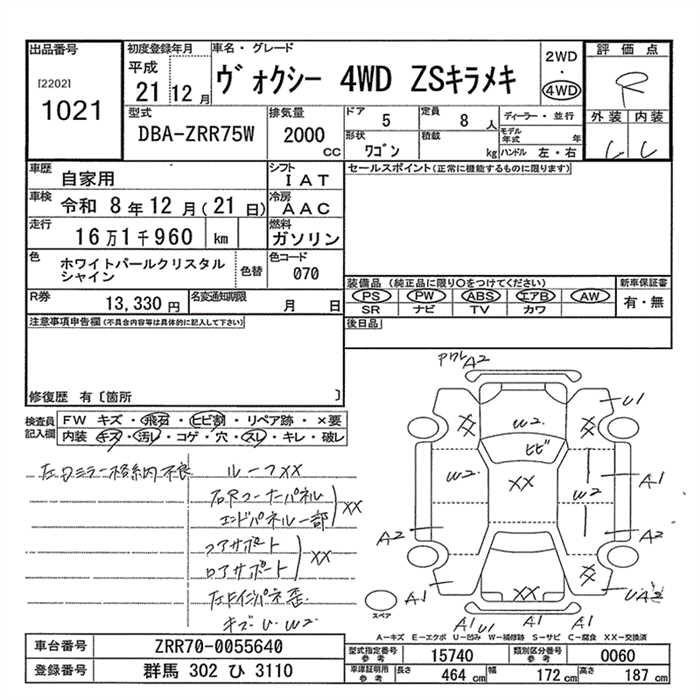 出品番号
[2202]
1021
初度登録年月
平成
21 12 月
車名・グレード
ヴォクシー 4WD ZSキラメキ
2WD
・
4WD
評価点
R
外装 内装
型式
DBA-ZRR75W
排気量
2000
cc
ドア
5
定員
8 人
ディーラー・並行
形状
ワゴン
積載
kg
モデル年式 年
ハンドル 左・右
車歴
自家用
シフト
IAT
セールスポイント(正常に機能するものに限ります)
車検
令和 8 年 12 月(21 日)
冷房
AAC
走行
16 万 1 千 960 km
燃料
ガソリン
色
ホワイトパールクリスタル
シャイン
色替
色コード
070
R券
13,330 円
名変通知期限
月 日
装備品(純正品に限り○をつけてください)
PS PW ABS エアB AW
SR ナビ TV カワ
新車保証書
有・無
後日品
注意事項申告欄(不具合内容等は具体的に記入して下さい)
修復歴 有〔箇所 〕
検査員
記入欄
FW キズ・飛石・ヒビ割・リペア跡・×要
内装 キズ・汚レ・コゲ・穴・スレ・キレ・破レ
左ドミラー格納不良
ルーフXX
右Rコーナーパネル
エンドパネル一部
XX
コアサポート
ロアサポート
XX
キズ U・W2
アワレA2
U1
XX
XX
W2
ヒビ
W2
XX
W2
A1
A2
A2
XX
XX
A1
A1
A1
UA2
スペア
A―キズ E―エクボ U―凹み W―補修跡 S―サビ C―腐食 XX―交換済
車台番号
ZRR70-0055640
登録番号
群馬 302 ひ 3110
型式指定番号
参考
15740
類別区分番号
参考
0060
車庫証明用
参考
長さ
464 cm
幅
172 cm
高さ
187 cm